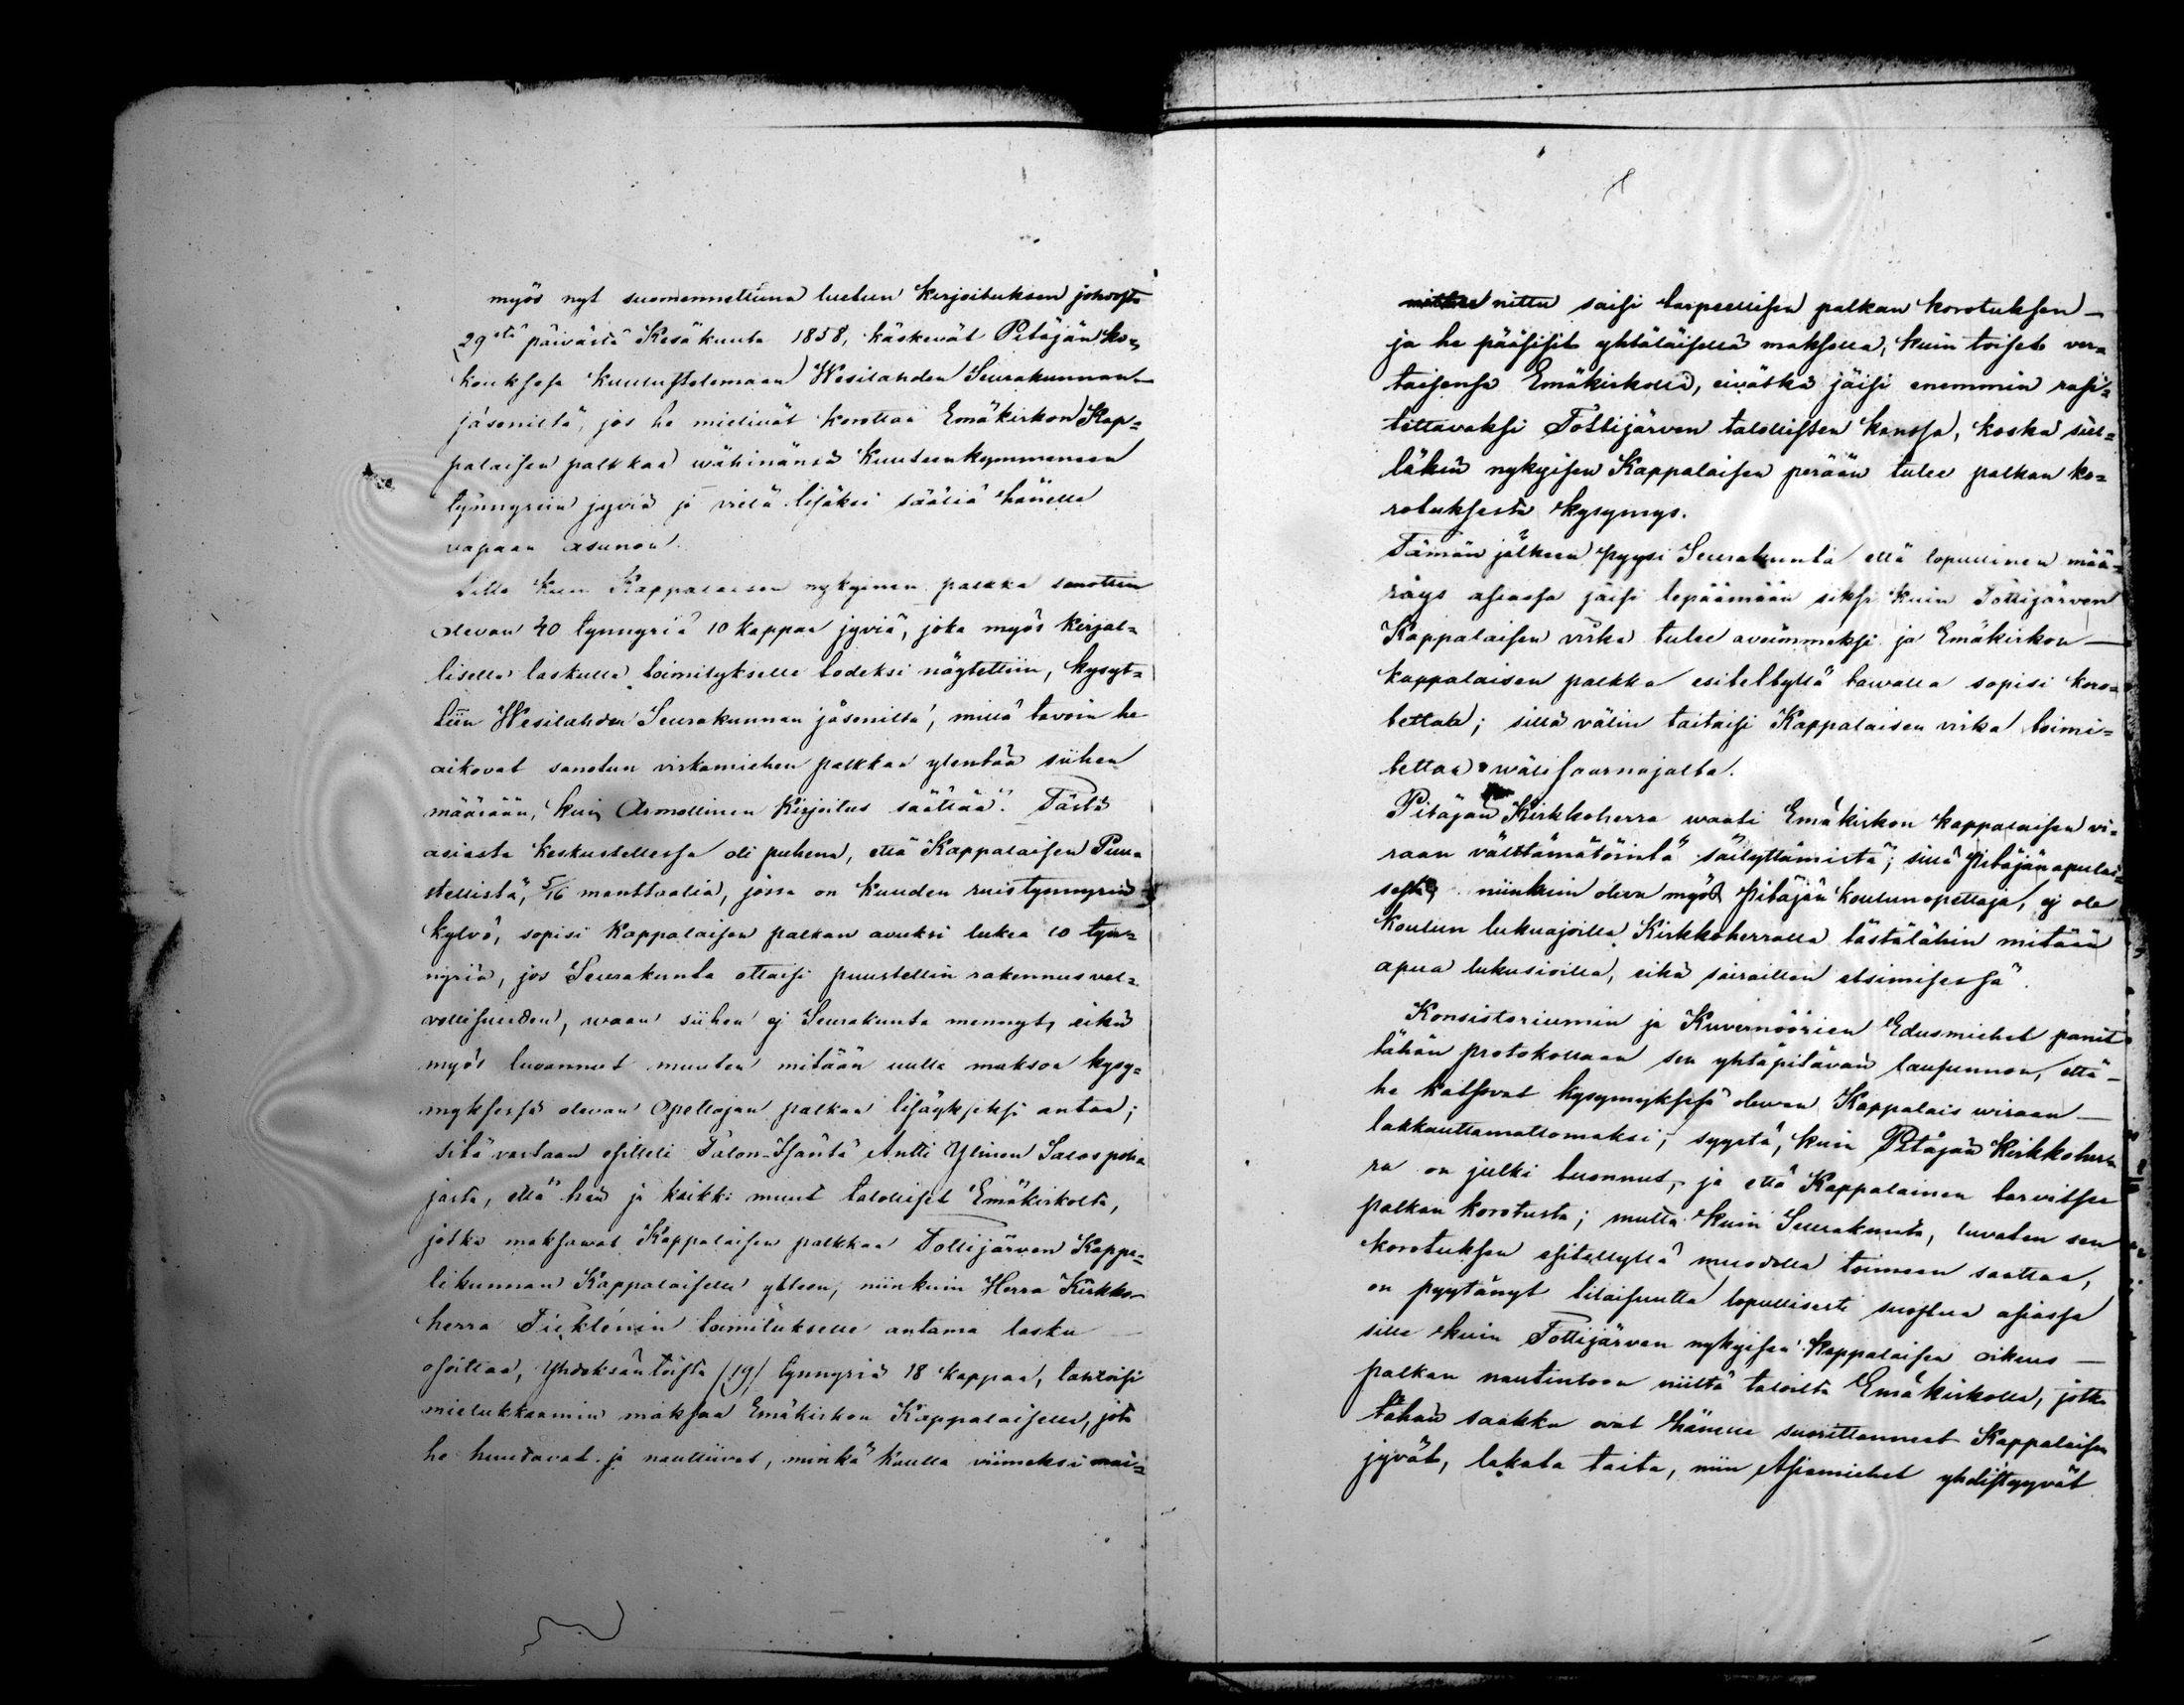 myös nyt suomennettuna luetun Kirjoituksen johdosta
29stä päivästä Kesäkuuta 1858, käskevät Pitäjän ko=
kouksesa kuulustelemaan Wesilahden Seurakunnan
jäseniltä, jos he mielivät korottaa Emäkirkon Kap=
palaisen palkkaa wähinänsä kuuteenkymmeneen
tynnyriin jyviä ja vielä lisäksi säätiä hänelle
vapaan asunon.
Sitte kuin Kappalaisen nykyinen palkka sanottiin
olevan 40 tynnyriä 10 kappaa jyviä, joka myös kirjal=
lisella laskulla toimitykselle todeksi näytettiin, kysyt=
tiin Wesilahden Seurakunnan jäseniltä, millä tavoin he
aikovat sanotun virkamiehen palkkaa ylentää siihen
määrään, kuin Armollinen Kirjoitus säätää. Tästä
asiasta keskustellessa oli puhena, että Kappalaisen Puu=
stellistä, 5/16 manttaalia, jossa on kuuden ruistynnyrin
kylvö, sopisi Kappalaisen palkan avuksi lukea 10 tyn=
nyriä, jos Seurakunta ottaisi puustellin rakennus vel=
vollisuuden, waan siihen ej Seurakunta mennyt, eikä
myös luvannut muuten mitään uutta maksoa kysy=
myksessä olevan Opettajan palkan lisäykseksi antaa;
sitä vastaan esitteli Talon-Isäntä Antti Ylinen Salospoh=
jasta, että hän ja kaikki muut talolliset Emäkirkolta,
jotka maksawat Kappalaisen palkkaa Tottijärven Kappe=
likunnan Kappalaiselle yhteen, niinkuin Herra Kirkko-
herra Ticklénin toimitukselle antama lasku
osoittaa, Yhdeksäntoista (19) tynnyriä 18 kappaa, tahtoisi
mielukkaamin maksaa Emäkirkon Kappalaiselle, jota
he huutavat ja nauttiivat, minkä kautta viimeksi mai=
nittu saisi tarpeellisen palkan korotuksen —
ja he pääsisit yhtäläisellä maksolla, kuin toiset ver=
taisensa Emäkirkolla, eivätkä jäisi enemmin rasi=
tettavaksi Tottijärven talollisten kanssa, koska siel=
täkin nykyisen Kappalaisen perään tulee palkan ko=
rotuksesta kysymys.
Tämän jälkeen pyysi Seurakunta että lopullinen mää=
räys asiassa jäisi lepäämään siksi kuin Tottijärven
Kappalaisen virka tulee avoimmeksi ja Emäkirkon —
kappalaisen palkka esitellyllä tawalla sopisi koro=
tettaa; sillä välin taitaisi Kappalaisen virka toimi=
tettaa wälisaarnajalta.
Pitäjän Kirkkoherra waati Emäkirkon kappalaisen vi=
raan välttämätöintä säilyttämistä; sillä pitäjänapulai=
sesta niinkuin oleva myös Pitäjän koulunopettaja, ej ole
koulun lukuajoilla Kirkkoherralla tästälähin mitään
apua lukusioilla, eikä sairaitten etsimisessä.
Konsistoriumin ja Kuvernöörien Edusmiehet panit
tähän protokollaan sen yhtäpitävän lausunnon, että —
he katsovat kysymyksesä olewan Kappalais wiraan —
lakkauttamattomaksi, syystä, kuin Pitäjän Kirkkoher=
ra on julki tuonnut, ja että Kappalainen tarvitsee
palkan korotusta; mutta kuin Seurakunta, luvaten sen
korotuksen esitellyllä muodolla toimeen saattaa,
on pyytänyt tilaisuutta lopullisesti suostua asiassa
sitte kuin Tottijärven nykyisen Kappalaisen oikeus —
palkan nautintoon niiltä taloilta Emäkirkolla, jotka
tähän saakka ovat hänelle suorittanneet Kappalaisen
jyvät, lakata taita, niin Asiamiehet yhdistyyvät